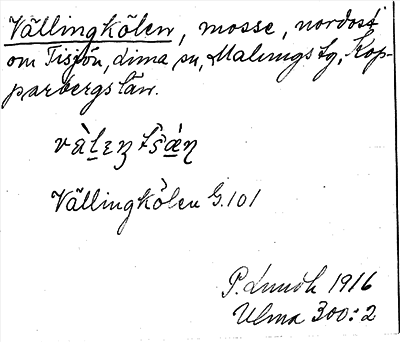 Vällingkölen, mosse, nordost
om Tisjön, Lima sn, Malungs tg, Kop-
parbergs län.
Vällingkölen G. 101
1916
Ulma 300:2